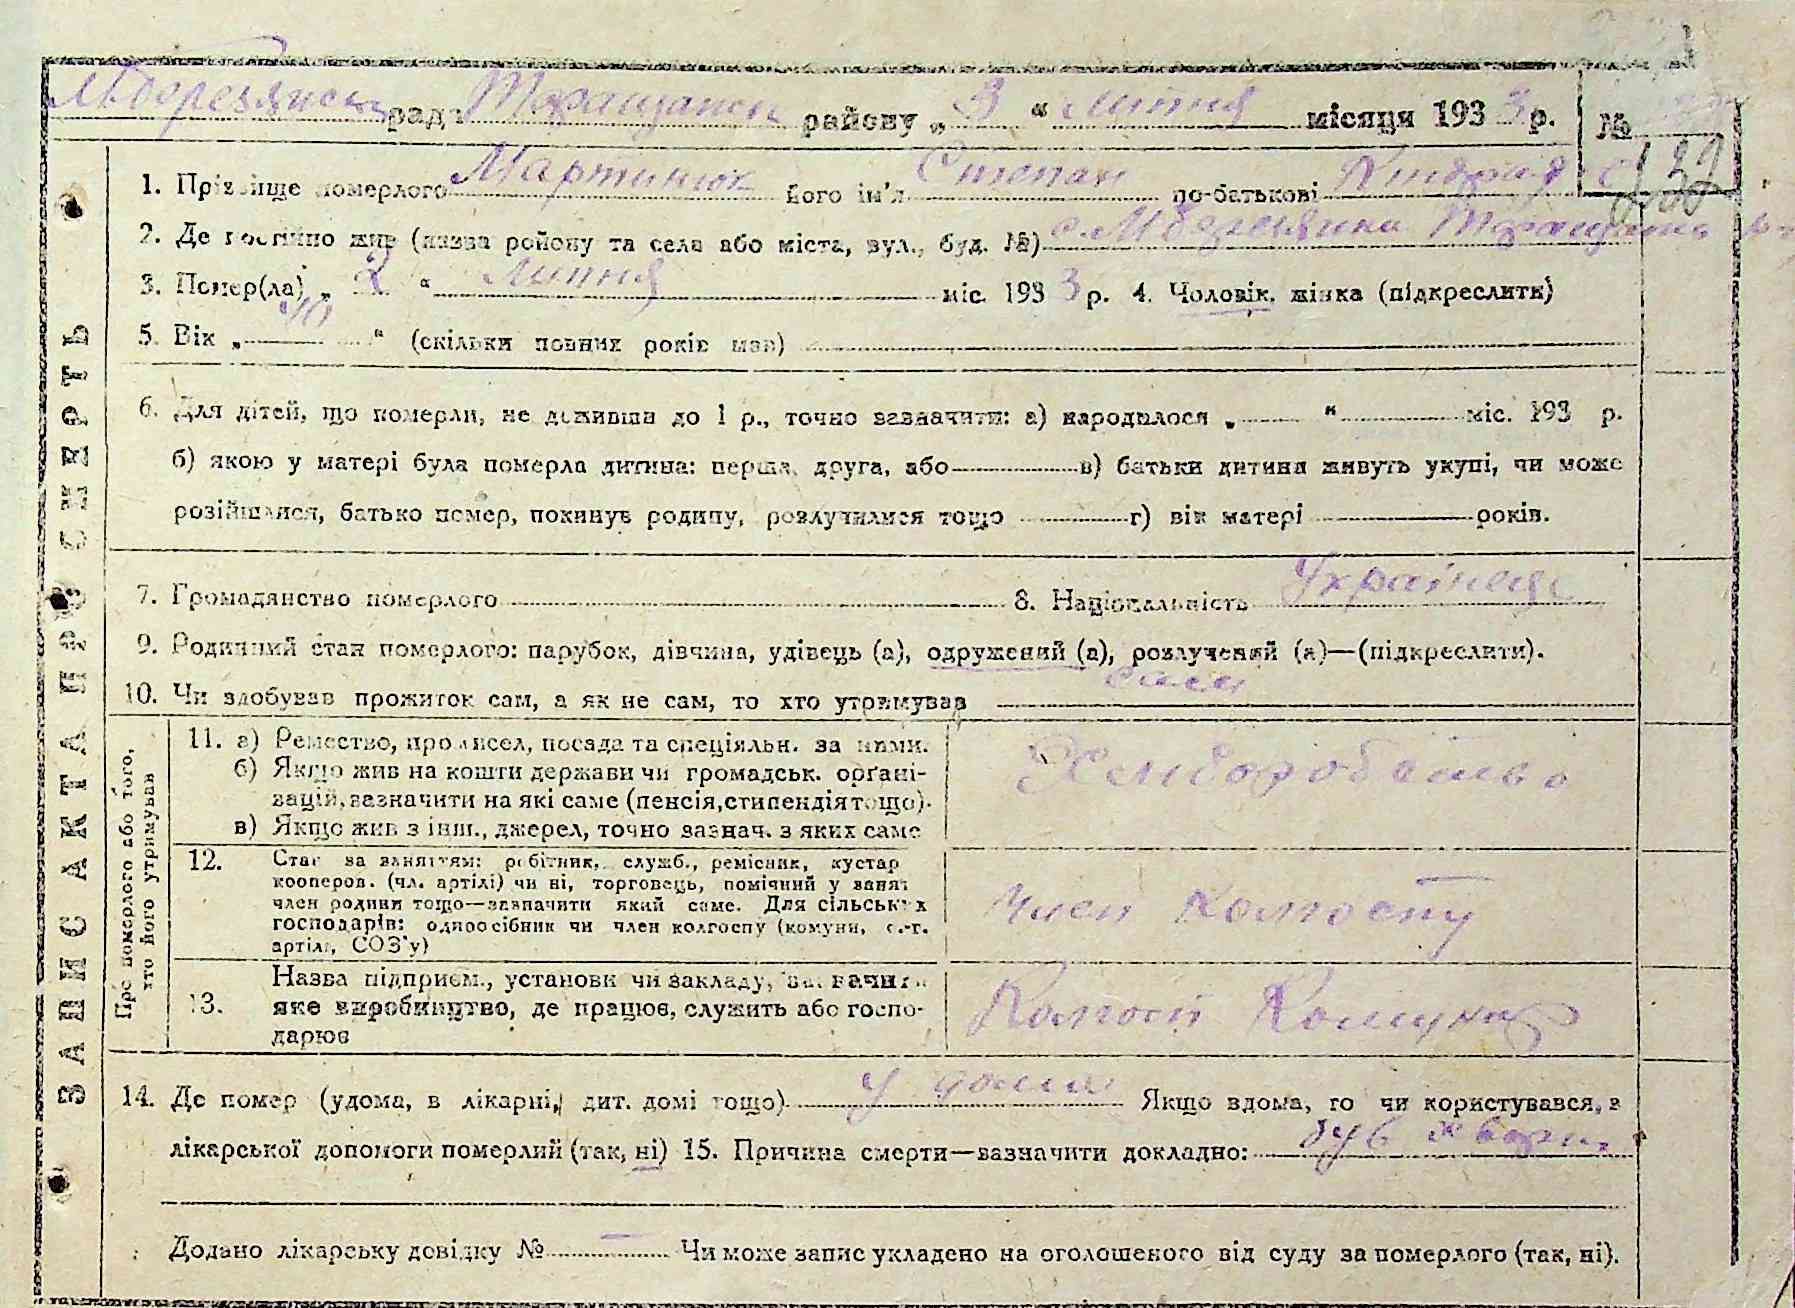 М березянськ рада Таращанськ району „ 3 “ липня місяця 193 3 р. №
139
1. Прізвище померлого Мартинюк його ім'я Степан по-батькові Киндрат
2. Де постійно жив (назва району та села або міста, вул., буд. №) с. М березянка Таращанськ р-
3. Помер(ла) „ 2 “ липня міс. 193 3 р. 4. Чоловік, жінка (підкреслити)
5. Вік „ 40 “ (скільки повних років мав)
6. Для дітей, що померли, не доживши до 1 р., точно зазначити: а) народилося „ “ міс. 193 р.
б) якою у матері була померла дитина: перша, друга, або в) батьки дитини живуть укупі, чи може
розійшлися, батько помер, покинув родину, розлучилися тощо г) вік матері років.
7. Громадянство померлого 8. Національність Українець
9. Родинний стан померлого: парубок, дівчина, удівець (а), одружений (а), розлучений (а)—(підкреслити).
10. Чи здобував прожиток сам, а як не сам, то хто утримував сам
ЗАПИС АКТА ПРО СМЕРТЬ
Про померлого або того,
хто його утримував
11. а) Ремество, промисел, посада та спеціяльн. за ними.
б) Якщо жив на кошти держави чи громадськ. орґані-
зацій, зазначити на які саме (пенсія, стипендія тощо).
в) Якщо жив з інш., джерел, точно зазнач. з яких саме
Хлиборобство
12. Стан за заняттям: робітник, служб., ремісник, кустар
кооперов. (чл. артілі) чи ні, торговець, помічний у занят
член родини тощо—зазначити який саме. Для сільських
господарів: одноосібник чи член колгоспу (комуни, с.-г.
артілі, СОЗ'у)
Член колгоспу
13. Назва підприєм., установи чи закладу, зазначити
яке виробництво, де працює, служить або госпо-
дарює
Колгосп
14. Де помер (удома, в лікарні, дит. домі тощо) у дома Якщо вдома, то чи користувався з
лікарської допомоги померлий (так, ні) 15. Причина смерти—зазначити докладно: був хворий
Додано лікарську довідку № — Чи може запис укладено на оголошеного від суду за померлого (так, ні).